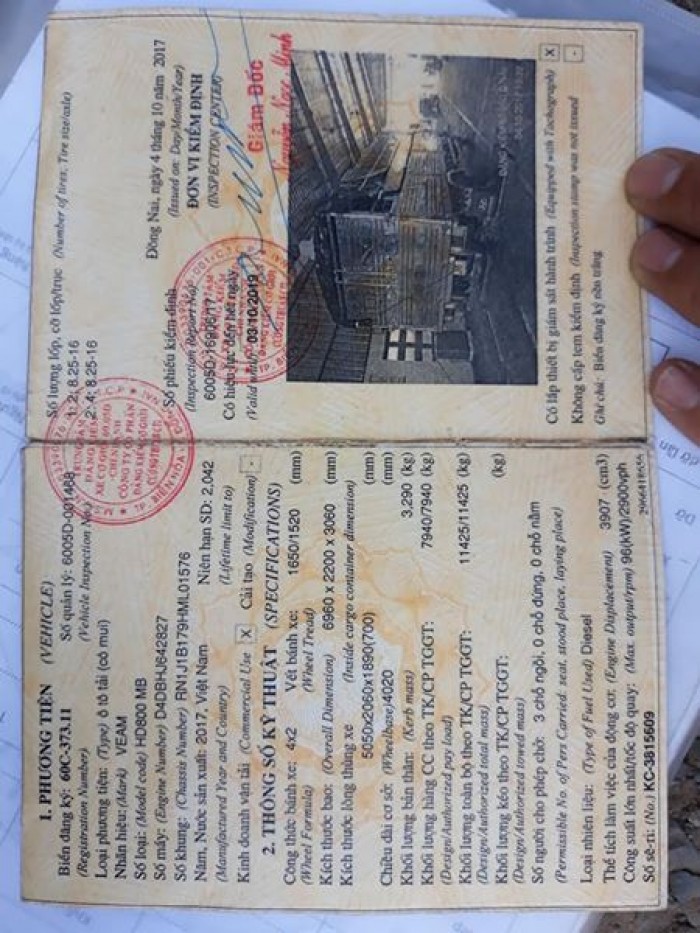 1. PHƯƠNG TIỆN (VEHICLE)
Biển đăng ký: 60C-373.11 Số quản lý: 6005D-001468
(Registration Number) (Vehicle Inspection No.)
Loại phương tiện: (Type) ô tô tải (có mui)
Nhãn hiệu: (Mark) VEAM
Số loại: (Model code) HD800 MB
Số máy: (Engine Number) D4DBHJ642827
Số khung: (Chassis Number) RN1J1B179HML01576
Năm, Nước sản xuất: 2017, Việt Nam Niên hạn SD: 2,042
(Manufactured Year and Country) (Lifetime limit to)
Kinh doanh vận tải (Commercial Use) X Cải tạo (Modification) -
2. THÔNG SỐ KỸ THUẬT (SPECIFICATIONS)
Công thức bánh xe: 4x2 Vết bánh xe: 1650/1520 (mm)
(Wheel Formula) (Wheel Tread)
Kích thước bao: (Overall Dimension) 6960 x 2200 x 3060 (mm)
Kích thước lòng thùng xe (Inside cargo container dimension)
5050x2060x1890(700) (mm)
Chiều dài cơ sở: (Wheelbase) 4020 (mm)
Khối lượng bản thân: (Kerb mass) 3,290 (kg)
Khối lượng hàng CC theo TK/CP TGGT: 7940/7940 (kg)
(Design/Authorized pay load)
Khối lượng toàn bộ theo TK/CP TGGT: 11425/11425 (kg)
(Design/Authorized total mass)
Khối lượng kéo theo TK/CP TGGT:
(Design/Authorized towed mass)
Số người cho phép chở: 3 chỗ ngồi, 0 chỗ đứng, 0 chỗ nằm
(Permissible No. of Pers Carried: seat, stood place, laying place)
Loại nhiên liệu: (Type of Fuel Used) Diesel
Thể tích làm việc của động cơ: (Engine Displacement) 3907 (cm3)
Công suất lớn nhất/tốc độ quay: (Max. output/rpm) 96(kW)/2900vph
Số sê-ri: (No.) KC-3815609
Số lượng lốp, cỡ lốp/trục (Number of tires; Tire size/axle)
1: 2; 8.25-16
2: 4; 8.25-16
Số phiếu kiểm định
(Inspection Report No.)
6005D-16906/17
Có hiệu lực đến hết ngày
(Valid until) 03/10/2019
Đồng Nai, ngày 4 tháng 10 năm 2017
(Issued on: Day/Month/Year)
ĐƠN VỊ KIỂM ĐỊNH
(INSPECTION CENTER)
Giám Đốc
Nguyễn Ngọc Minh
Có lắp thiết bị giám sát hành trình (Equipped with Tachograph) X
Không cấp tem kiểm định (Inspection stamp was not issued) -
Ghi chú: Biển đăng ký nền trắng